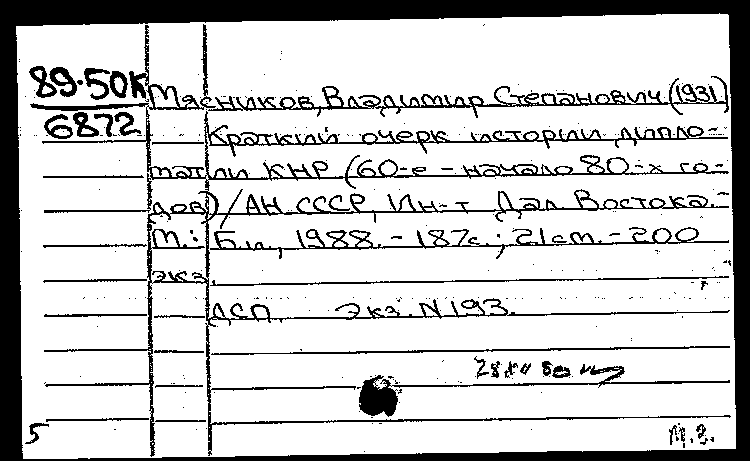 89-50К Мясников, Владимир Степанович (1931)
6872 Краткий очерк истории дипло-
матии КНР (60-е - начало 80-х го-
дов) / АН СССР, Ин-т Дал. Востока. -
М.: Б.и., 1988. - 187с.; 21см. - 200
экз.
ДСП. Экз. N 193.
5